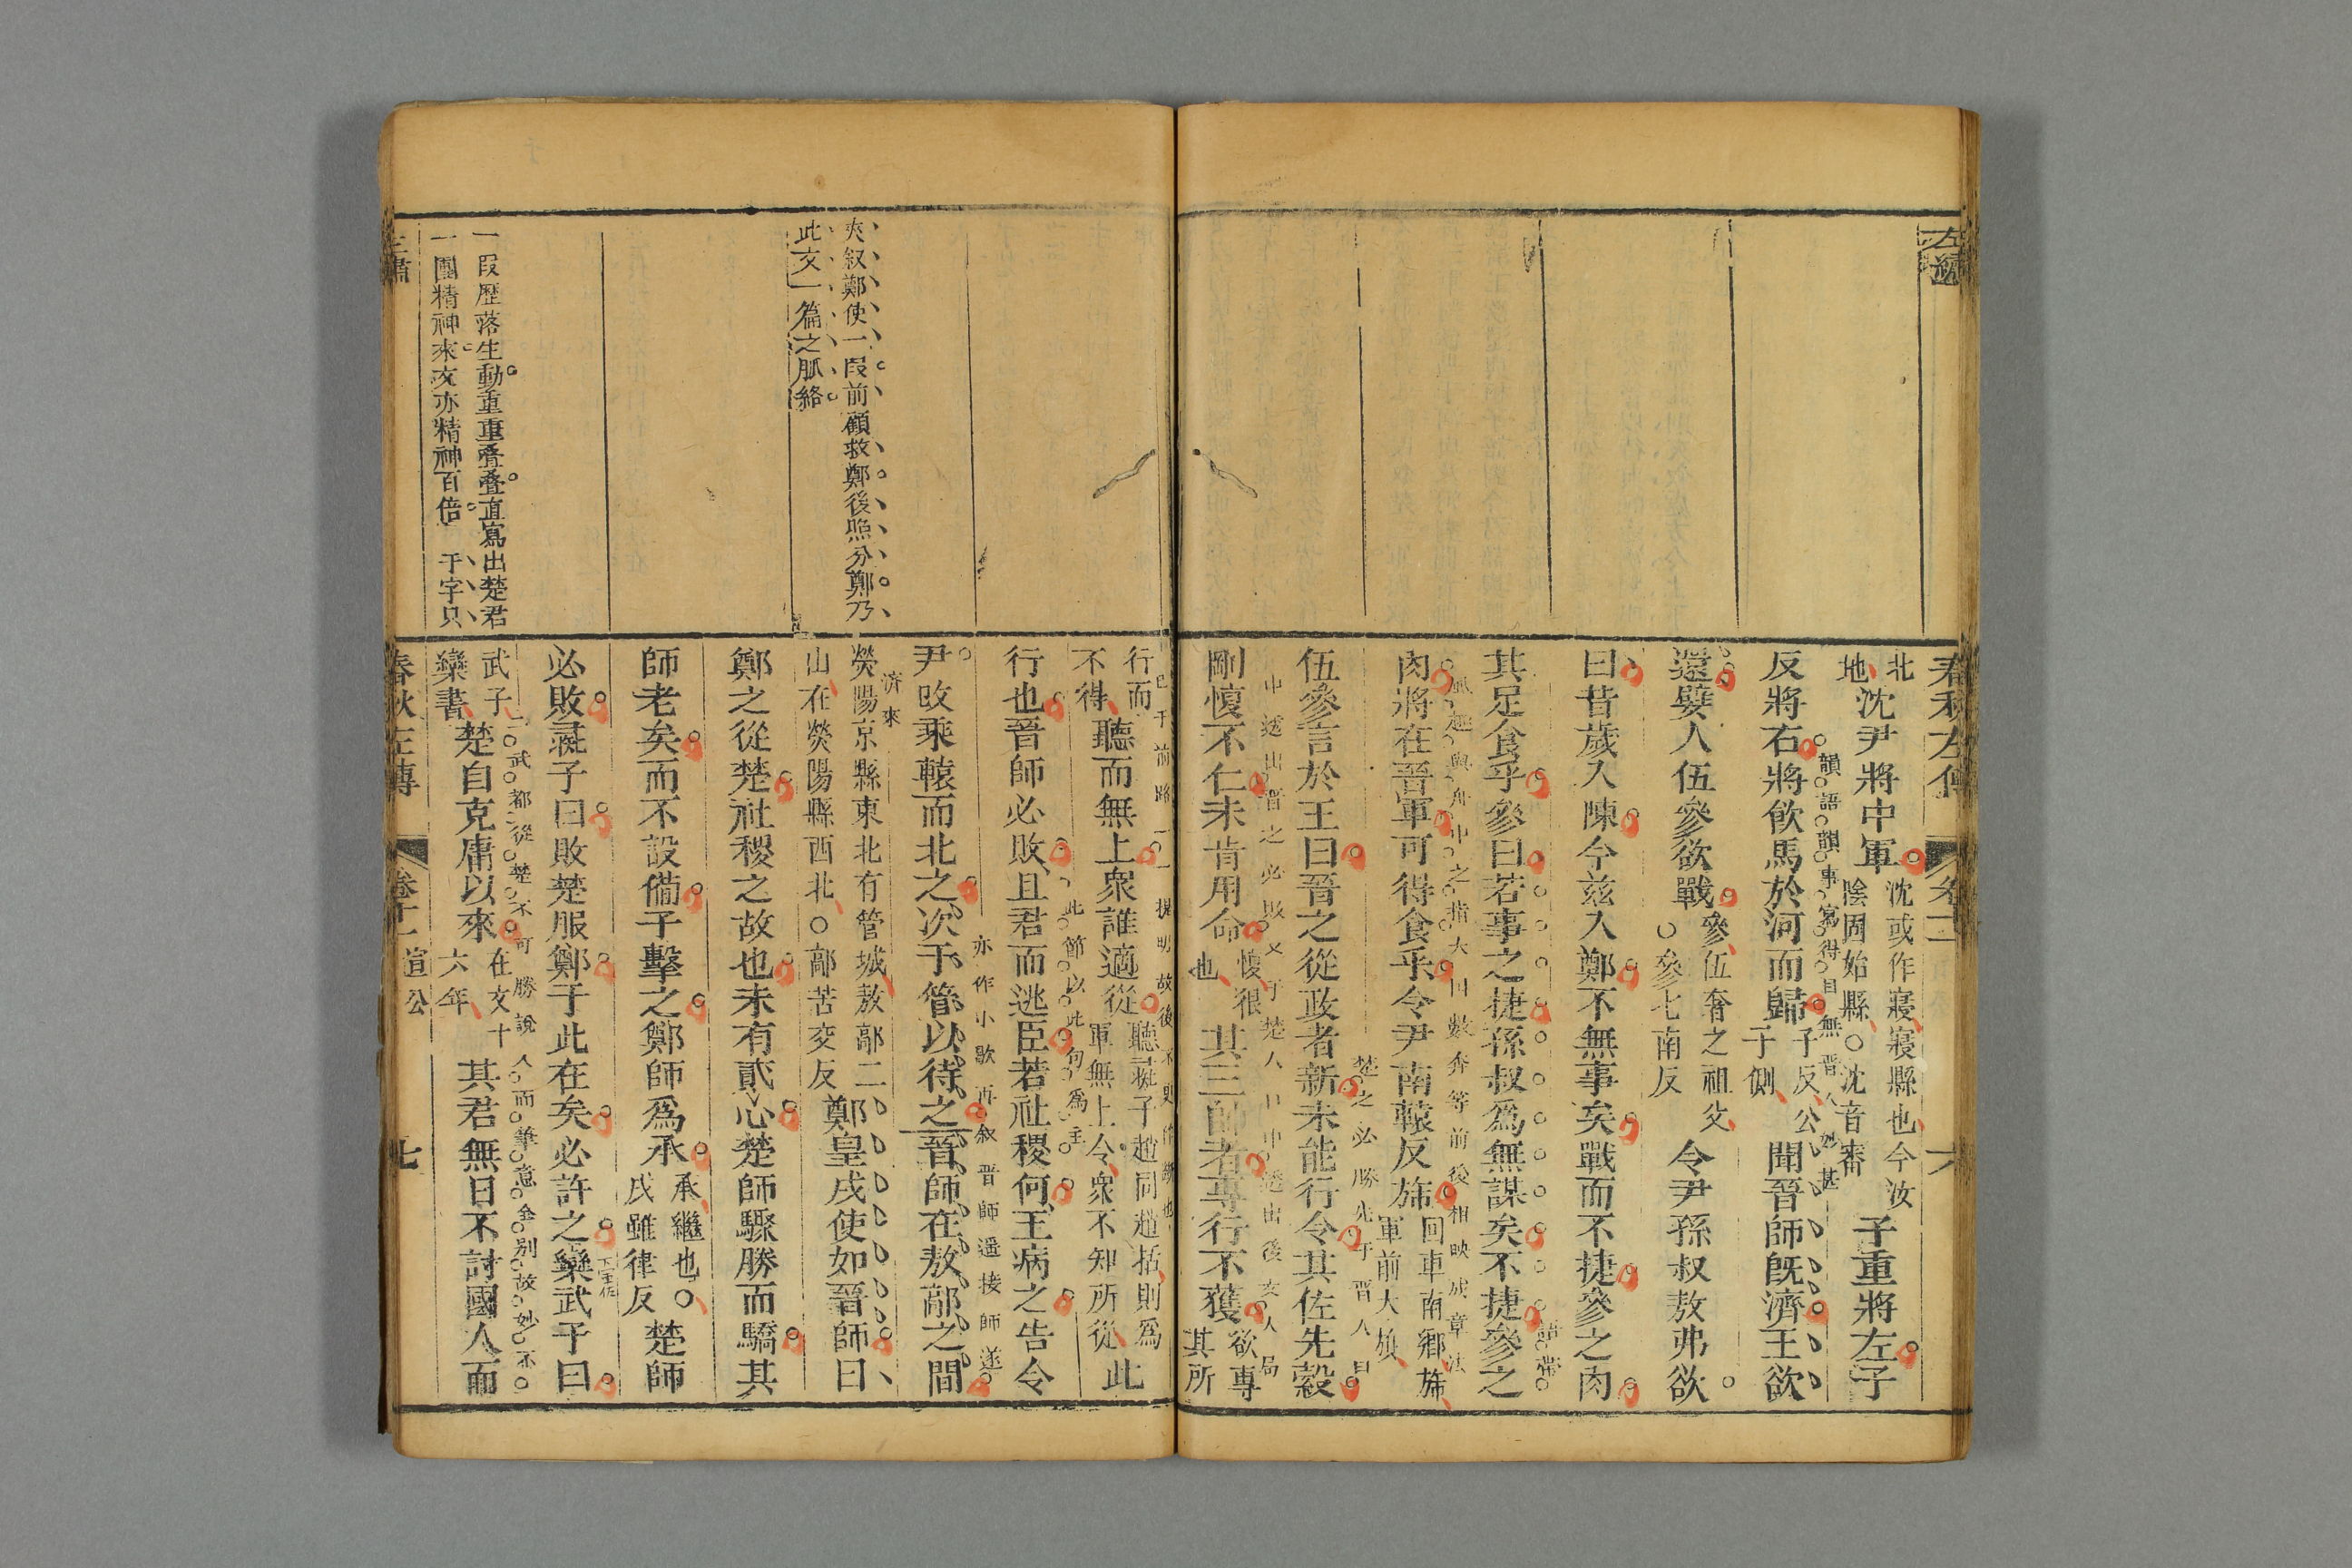 左繡
春秋左傳
卷十一
六
北
地
沈尹將中軍
沈或作寢寢縣也今汝
陰固始縣○沈音審
子重將左子
反將右將飲馬於河而歸
子反公
子側
聞晉師旣濟王欲
韻語韻事寫得目無晉人妙甚
還嬖人伍參欲戰
參伍奢之祖父
○參七南反
令尹孫叔敖弗欲
曰昔歲入陳今茲入鄭不無事矣戰而不捷參之肉
其足食乎參曰若事之捷孫叔爲無謀矣不捷參之
肉將在晉軍可得食乎令尹南轅反旆
回車南鄉旆
軍前大旗
伍參言於王曰晉之從政者新未能行令其佐先縠
楚之必勝先于晉人口
剛愎不仁未肯用命
愎很
也
其三帥者專行不獲
欲專
其所
行而
不得
聽而無上衆誰適從
聽彘子趙同趙括則爲
軍無上令衆不知所從
此
行也晉師必敗且君而逃臣若社稷何王病之告令
此節以此句爲主
尹改乘轅而北之次于管以待之晉師在敖鄗之間
亦作小歇再叙晉師遥接師遂
濟來
滎陽京縣東北有管城敖鄗二
山在滎陽縣西北○鄗苦交反
鄭皇戌使如晉師曰
夾叙鄭使一段前顧救鄭後照分鄭乃
此文一篇之脈絡
鄭之從楚社稷之故也未有貳心楚師驟勝而驕其
師老矣而不設備子擊之鄭師爲承
承繼也○
戌雖律反
楚師
必敗彘子曰敗楚服鄭于此在矣必許之欒武子曰
武子
欒書
楚自克庸以來
在文十
六年
其君無日不討國人而
二武都從楚不可勝說人而筆意全別故妙不
一段歷落生動重重疊疊直寫出楚君
一團精神來文亦精神百倍 于字只
春秋左傳
卷十一
宣公
七